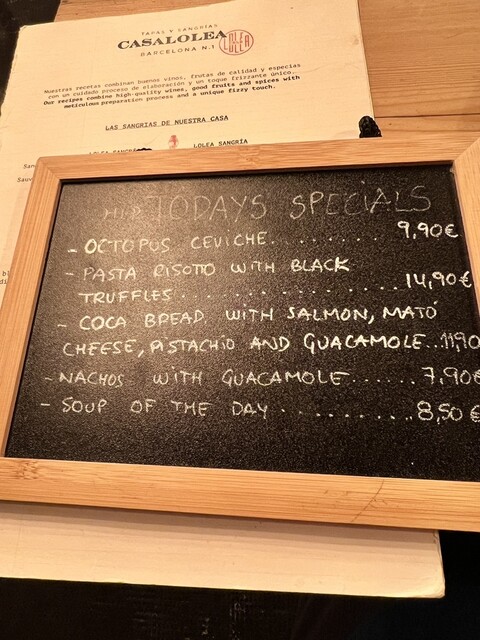 TAPAS Y SANGRÍAS
CASALOLEA
BARCELONA N.1
LOLEA
Nuestras recetas combinan buenos vinos, frutas de calidad y especias
con un cuidado proceso de elaboración y un toque frizzante único.
Our recipes combine high-quality wines, good fruits and spices with
meticulous preparation process and a unique fizzy touch.
LAS SANGRIAS DE NUESTRA CASA
LOLEA SANGRÍA
TODAYS SPECIALS
- OCTOPUS CEVICHE........ 9,90€
- PASTA RISOTO WITH BLACK
TRUFFLES.................. 14,90€
- COCA BREAD WITH SALMON, MATÓ
CHEESE, PISTACHIO AND GUACAMOLE..11,90
- NACHOS WITH GUACAMOLE...... 7,90€
- SOUP OF THE DAY.......... 8,50€